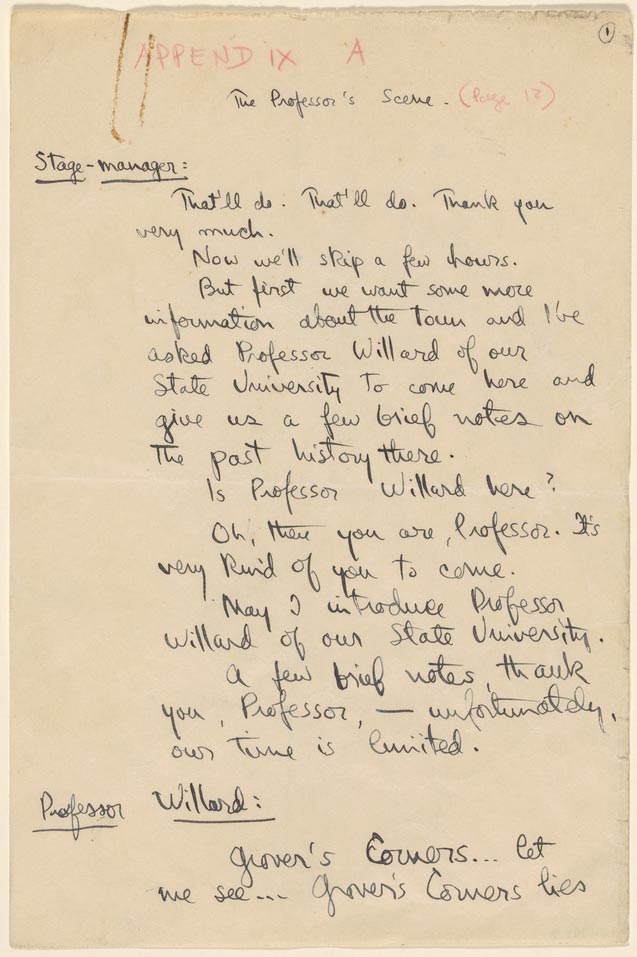 1
APPENDIX A
The Professor's Scene. (Page 12)
Stage-manager:
That'll do. That'll do. Thank you
very much.
Now we'll skip a few hours.
But first we want some more
information about the town and I've
asked Professor Willard of our
State University to come here and
give us a few brief notes on
the past history there.
Is Professor Willard here?
Oh, there you are, Professor. It's
very kind of you to come.
May I introduce Professor
Willard of our State University.
A few brief notes, thank
you, Professor, — unfortunately,
our time is limited.
Professor Willard:
Grover's Corners... let
me see... Grover's Corners lies